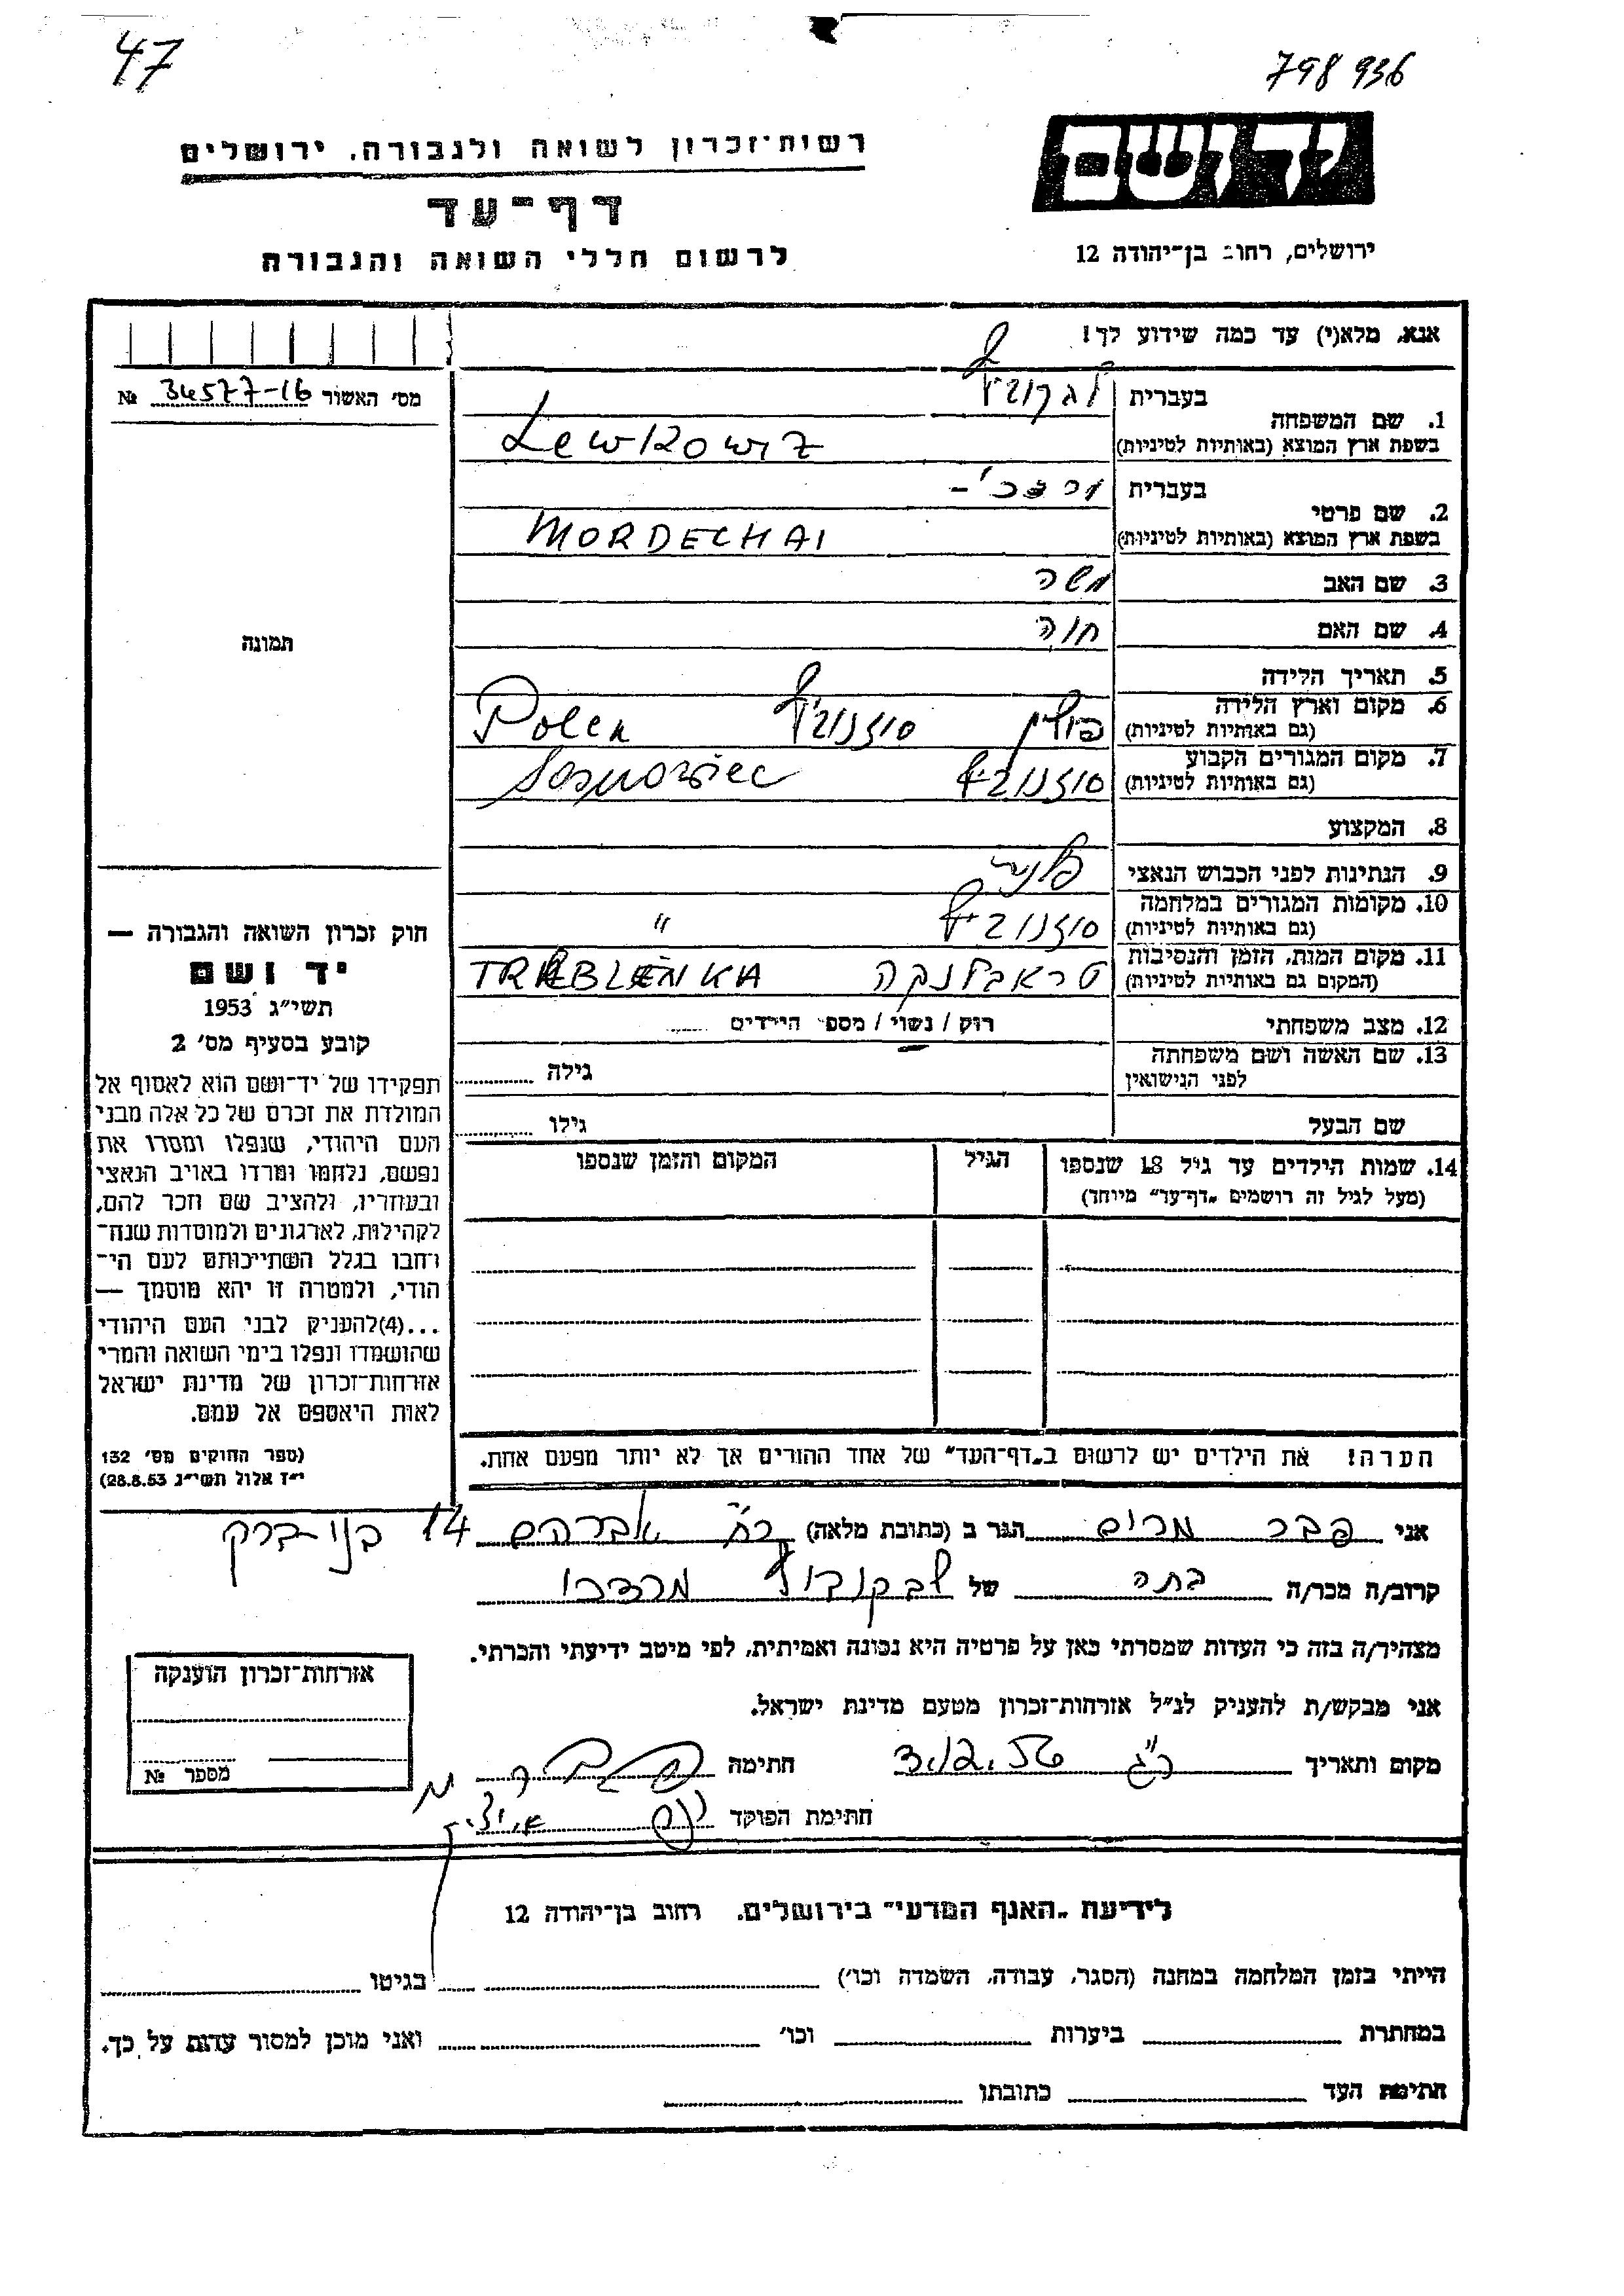 47
798 936
רשות־זכרון לשואה ולגבורה, ירושלים
יד ושם
דף־עד
לרשום חללי השואה והגבורה
ירושלים, רחוב בן־יהודה 12
אנא, מלא(י) עד כמה שידוע לך!
מס׳ האשור 34577-16 №
1. שם המשפחה
בעברית לבקוביץ
בשפת ארץ המוצא (באותיות לטיניות) Lewkowiz
2. שם פרטי
בעברית מרדכי -
בשפת ארץ המוצא (באותיות לטיניות) MORDECHAI
3. שם האב משה
4. שם האם חוה
5. תאריך הלידה
6. מקום וארץ הלידה פולין סוזנוביץ Polen
(גם באותיות לטיניות)
7. מקום המגורים הקבוע סוזנוביץ Sosnowiec
(גם באותיות לטיניות)
8. המקצוע
9. הנתינות לפני הכבוש הנאצי
10. מקומות המגורים במלחמה סוזנוביץ "
(גם באותיות לטיניות)
11. מקום המות, הזמן והנסיבות טראבלנקה TREBLENKA
(המקום גם באותיות לטיניות)
12. מצב משפחתי רוק / נשוי / מספר הילדים
13. שם האשה ושם משפחתה
לפני הנישואין גילה
שם הבעל גילו
14. שמות הילדים עד גיל 18 שנספו הגיל המקום והזמן שנספו
(מעל לגיל זה רושמים „דף־עד” מיוחד)
הערה! את הילדים יש לרשום ב„דף־העד” של אחד ההורים אך לא יותר מפעם אחת.
תמונה
חוק זכרון השואה והגבורה —
יד ושם
תשי״ג 1953
קובע בסעיף מס׳ 2
תפקידו של יד־ושם הוא לאסוף אל
המולדת את זכרם של כל אלה מבני
העם היהודי, שנפלו ומסרו את
נפשם, נלחמו ומרדו באויב הנאצי
ובעוזריו, ולהציב שם וזכר להם,
לקהילות, לארגונים ולמוסדות שנח־
רחבו בגלל השתייכותם לעם הי־
הודי, ולמטרה זו יהא מוסמך —
...(4)להעניק לבני העם היהודי
שהושמדו ונפלו בימי השואה והמרי
אזרחות־זכרון של מדינת ישראל
לאות היאספם אל עמם.
(ספר החוקים מס׳ 132
י״ז אלול תשי״ג 28.8.53)
אני פבר מרים הגר ב (כתובת מלאה) רח׳ אברהם 14 בני ברק
קרוב/ה מכר/ה בתה של מרדכי
מצהיר/ה בזה כי העדות שמסרתי כאן על פרטיה היא נכונה ואמיתית, לפי מיטב ידיעתי והכרתי.
אני מבקש/ת להעניק לנ״ל אזרחות־זכרון מטעם מדינת ישראל.
מקום ותאריך חתימה
חתימת הפוקד
אזרחות־זכרון הוענקה
מספר №
לידיעת „האגף המדעי” בירושלים, רחוב בן־יהודה 12
הייתי בזמן המלחמה במחנה (הסגר, עבודה, השמדה וכו׳) בגיטו
במחתרת ביערות וכו׳ ואני מוכן למסור עדות על כך.
חתימת העד כתובתו